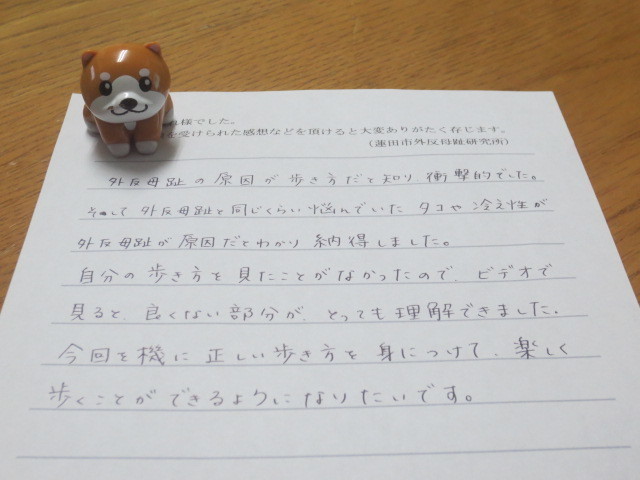 れ様でした。
を受けられた感想などを頂けると大変ありがたく存じます。
(蓮田市外反母趾研究所)
外反母趾の原因が歩き方だと知り衝撃的でした。
そして外反母趾と同じくらい悩んでいたタコや冷え性が
外反母趾が原因だとわかり納得しました。
自分の歩き方を見たことがなかったので、ビデオで
見ると、良くない部分が、とっても理解できました。
今回を機に正しい歩き方を身につけて、楽しく
歩くことができるようになりたいです。